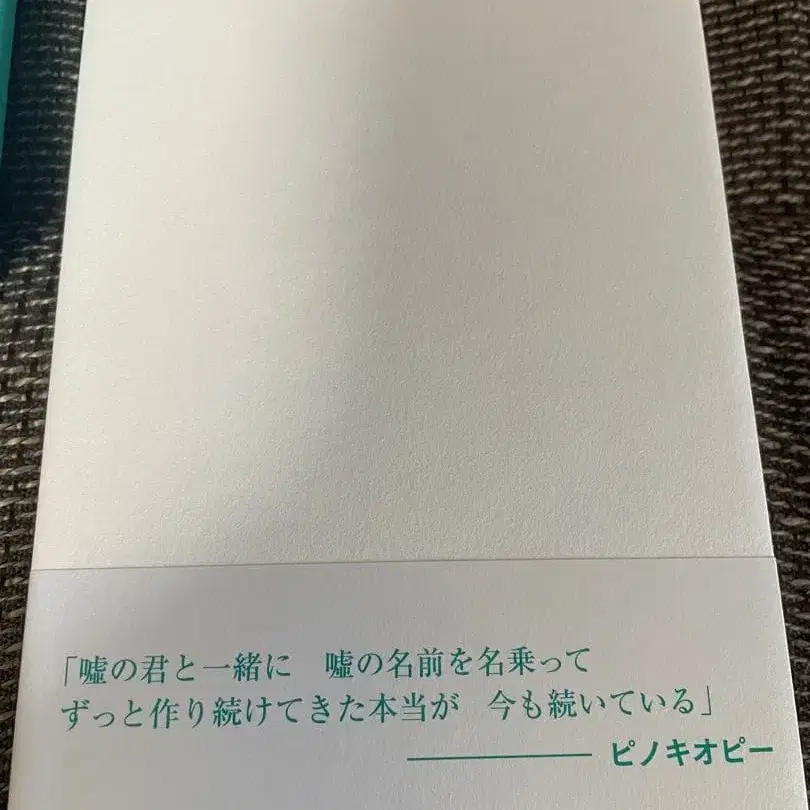 「嘘の君と一緒に　嘘の名前を名乗って
ずっと作り続けてきた本当が　今も続いている」
ピノキオピー